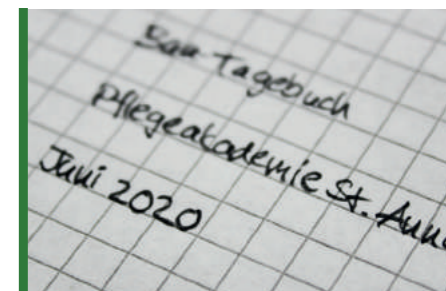 Bau-Tagebuch
Pflegeakademie St. Anna
Juni 2020